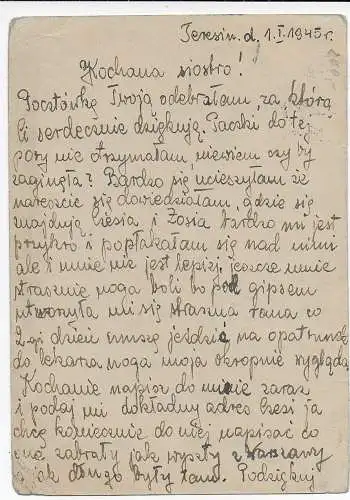 Teresin. d. 1.I.1945 r.
Kochana siostro!
Pocztówkę Twoją odebrałam, za którą
Ci serdecznie dziękuję. Paczki do tej
pory nie otrzymałam, niewiem czy by
zaginęła? Bardzo się ucieszyłam że
nareszcie się dowiedziałam, gdzie się
znajdują Czesia i Zosia bardzo mi jest
przykro i popłakałam się nad nimi
ale i mnie nie jest lepiej, jeszcze mnie
strasznie noga boli bo pod gipsem
utworzyła mi się straszna rana co
2-gi dzień muszę jeździć na opatrunek
do lekarza noga moja okropnie wygląda
Kochanie napisz do mnie zaraz
i podaj mi dokładny adres Czesi ja
chcę koniecznie do niej napisać co
one zabrały jak wyszły z Warszawy
i jak długo były tam. Podziękuj